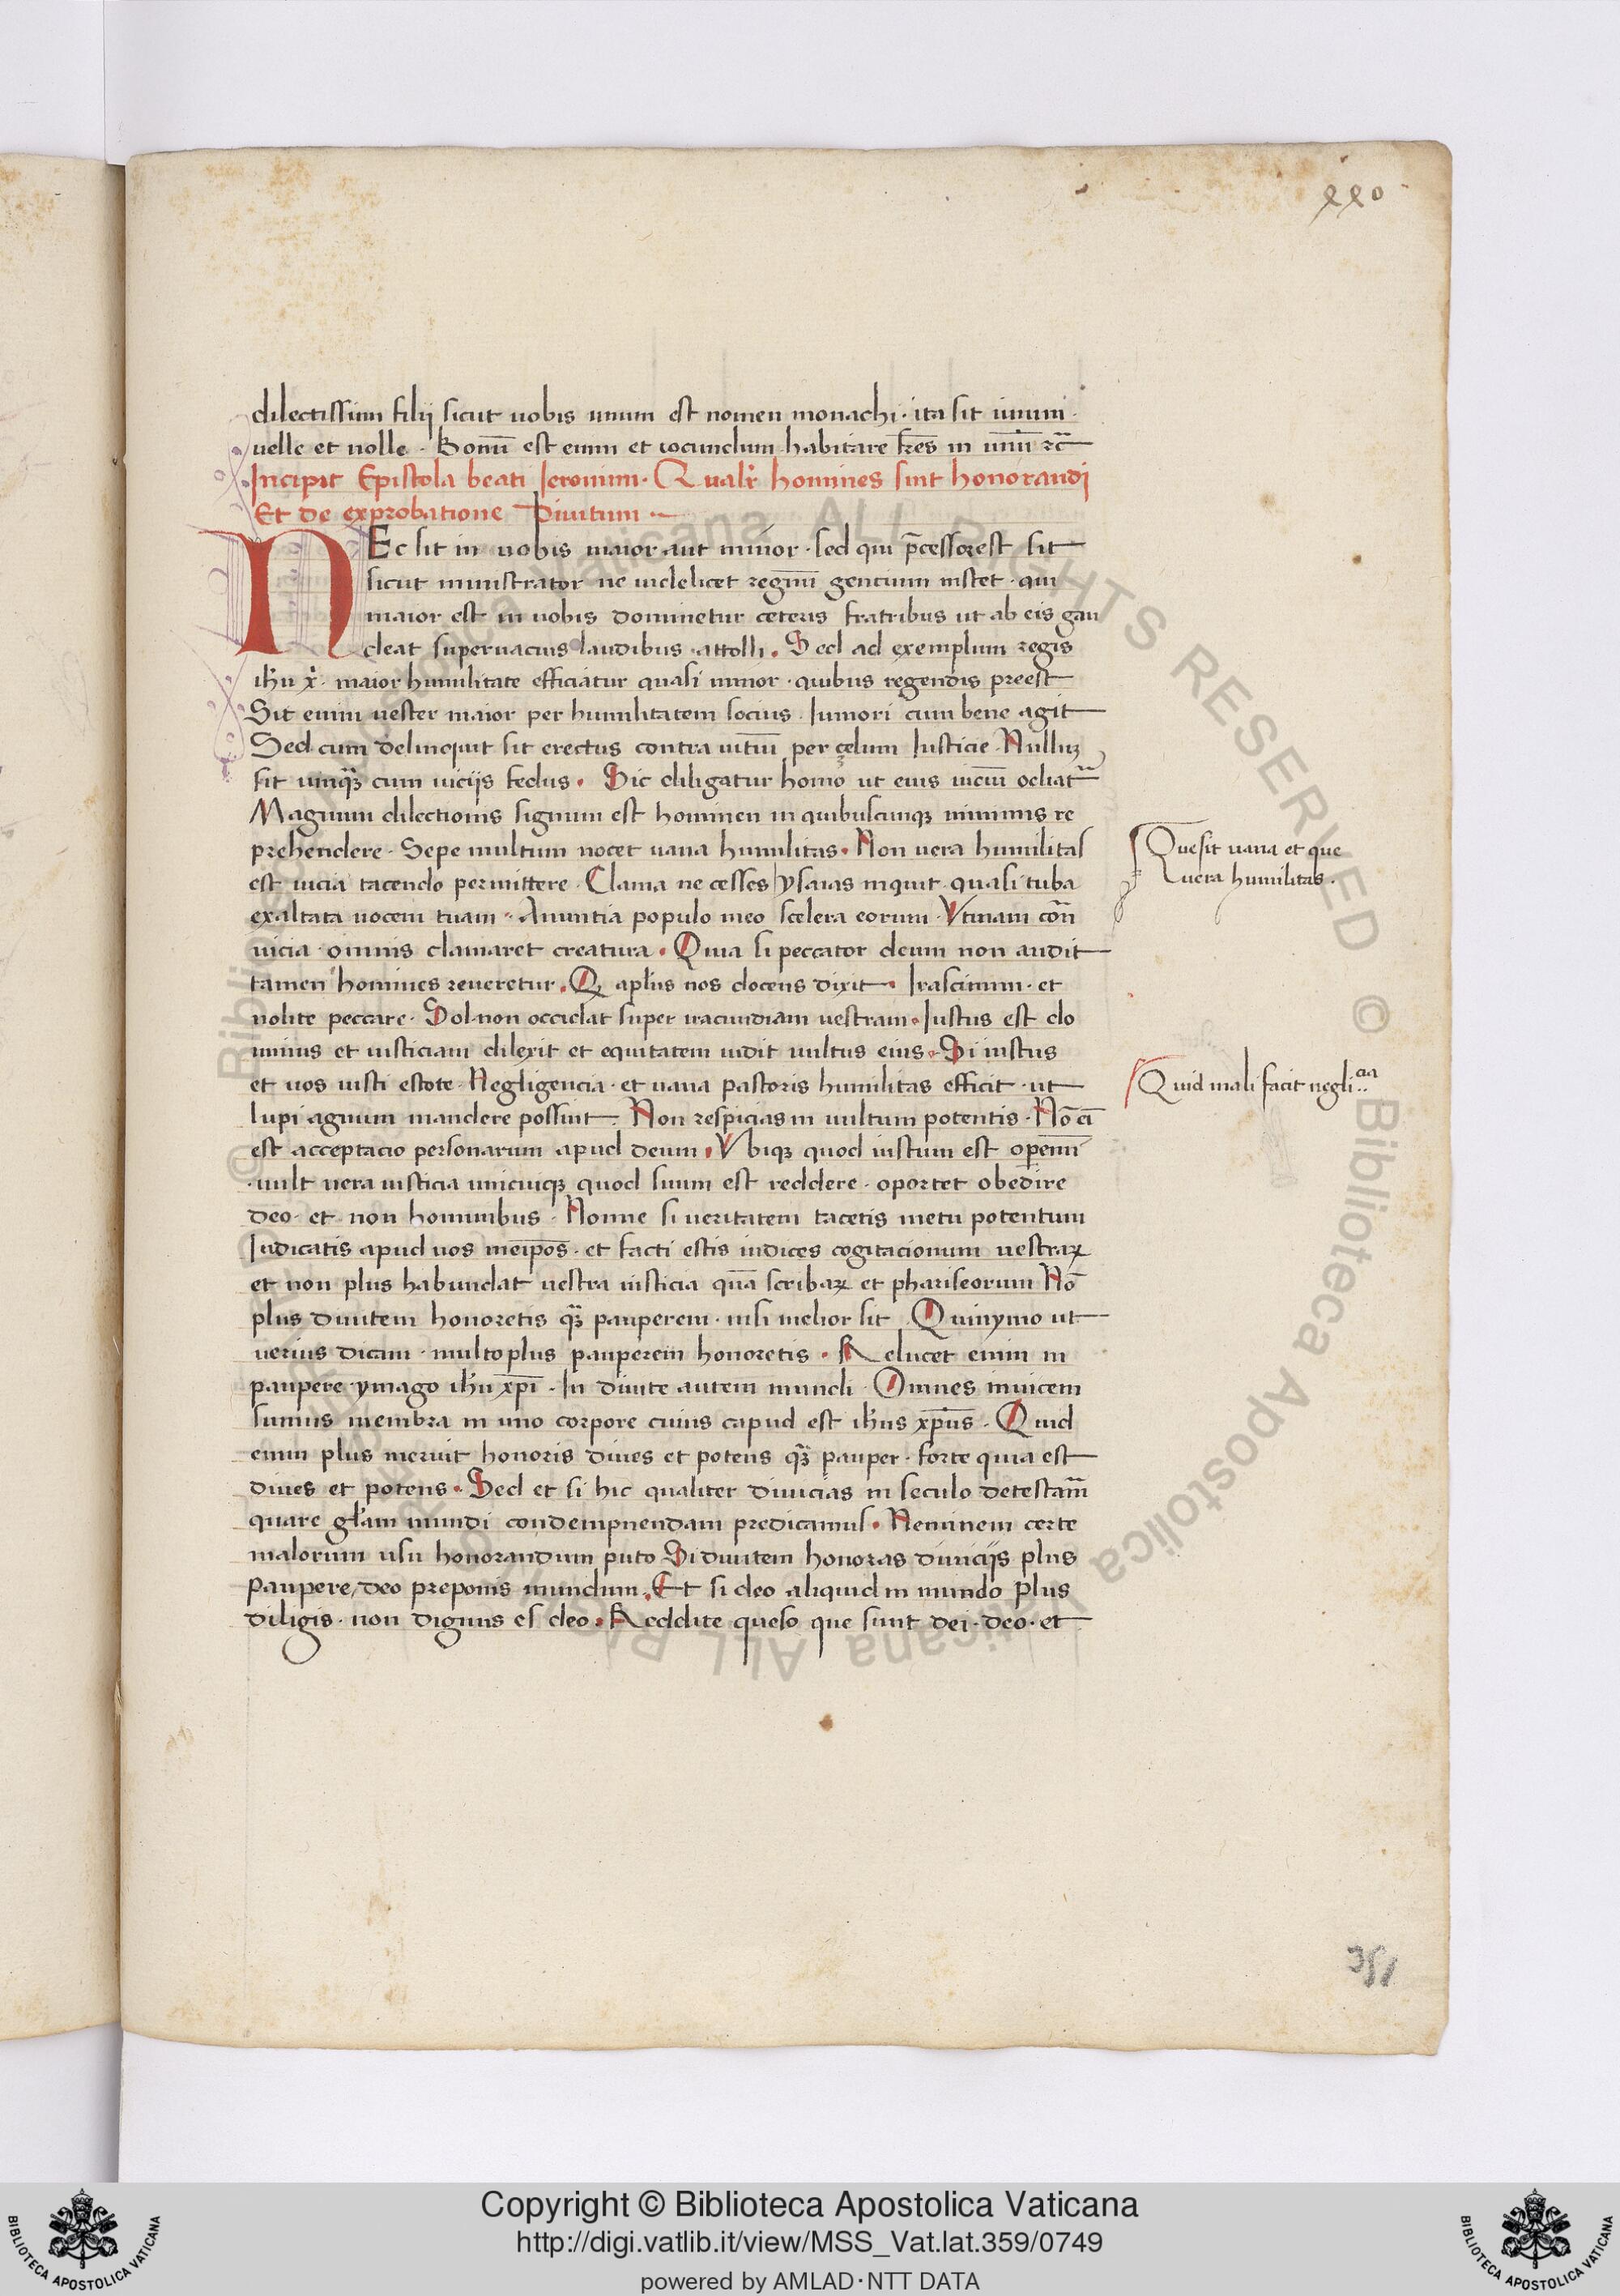 220
dilectissimi filij sicut uobis unum est nomen monachi · ita sit unum ·
uelle et nolle · Bonū est enim et iocundum habitare fr̄es in unū ⁊c̄
Incipit Epistola beati Ieronimi · Qualr̄ homines sint honorandi
Et de exprobatione Diuitum ·
NEc sit in uobis maior aut minor · sed qui p̄cessor est sit
sicut ministrator ne uidelicet regnū gentium instet · qui
maior est in uobis dominetur ceteris fratribus ut ab eis gau
deat superuacuis laudibus attolli · Sed ad exemplum regis
ih̄u x̄ · maior humilitate efficiatur quasi minor · quibus regendis preest
Sit enim uester maior per humilitatem socius · Iuniori cum bene agit
Sed cum delinquit sit erectus contra uitiū per çelum Iusticie · Nullꝰ
sit unq̄ꝫ cum uicijs fedus · Sic diligatur homo ut eius uiciū odiat̄
Magnum dilectionis signum est hominem in quibuscunqꝫ minimis re
prehendere · Sepe multum nocet uana humilitas · Non uera humilitas
est uicia tacendo permittere · Clama ne cesses ysaias inquit · quasi tuba
exaltata uocem tuam · Anuntia populo meo scelera eorum · Vtinam cōn
uicia omnis clamaret creatura · Quia si peccator deum non audit
tamen homines reueretur · Q apl̄us nos docens dixit · Irascimini · et
nolite peccare · Sol non occidat super iracundiam uestram · Iustus est do
minus et iusticiam dilexit et equitatem uidit uultus eius · Si iustus
et uos iusti estote · Negligencia · et uana pastoris humilitas efficit · ut
lupi agnum mandere possint · Non respicias in uultum potentis · Nō ei
est acceptacio personarum apud deum · Vbiqꝫ quod iustum est
uult uera iusticia unicuiqꝫ quod suum est reddere · oportet obedire
deo · et non hominibus · Nonne si ueritatem tacetis metu potentum
Iudicatis apud uos · et facti estis iudices cogitacionum uestraꝝ
et non plus habundat uestra iusticia quā scribaꝝ et phariseorum Nō
plus diuitem honoretis q̄ꝫ pauperem · nisi melior sit · Quinymo ut
uerius dicam · multo plus pauperem honoretis · Relucet enim in
paupere ymago ih̄u xp̄i · In diuite autem mundi · Omnes inuicem
sumus membra in uno corpore cuius capud est ih̄us xp̄us · Quid
enim plus meruit honoris diues et potens q̄ꝫ pauper · forte quia est
diues et potens · Sed et si hic qualiter diuicias in seculo detestam̄
quare gl̄am mundi condempnendam predicamus · Neminem certe
malorum usu honorandum puto Si diuitem honoras diuicijs plus
paupere / deo preponis mundum · Et si deo aliquid in mundo plus
diligis · non dignus es deo · Reddite queso que sunt dei · deo · et
Que sit uana et que
uera humilitas ·
Quid mali facit negli··cia
© Biblioteca Apostolica Vaticana ALL RIGHTS RESERVED
© Biblioteca Apostolica Vaticana ALL RIGHTS RESERVED
Copyright © Biblioteca Apostolica Vaticana
http://digi.vatlib.it/view/MSS_Vat.lat.359/0749
powered by AMLAD·NTT DATA
BIBLIOTECA APOSTOLICA VATICANA
BIBLIOTECA APOSTOLICA VATICANA